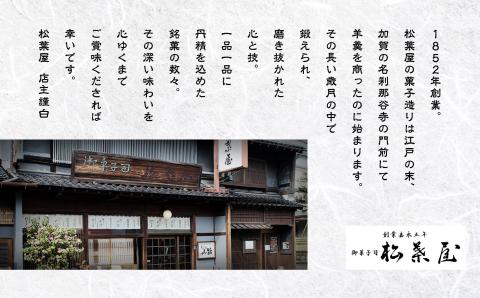 1852年創業。
松葉屋の菓子造りは江戸の末、
加賀の名刹那谷寺の門前にて
羊羹を商ったのに始まります。
その長い歳月の中で
鍛えられ、
磨き抜かれた
心と技。
一品一品に
丹精を込めた
銘菓の数々。
その深い味わいを
心ゆくまで
ご賞味くだされば
幸いです。
松葉屋 店主謹白
松葉屋
御菓子司
創業嘉永五年
御菓子司 松葉屋